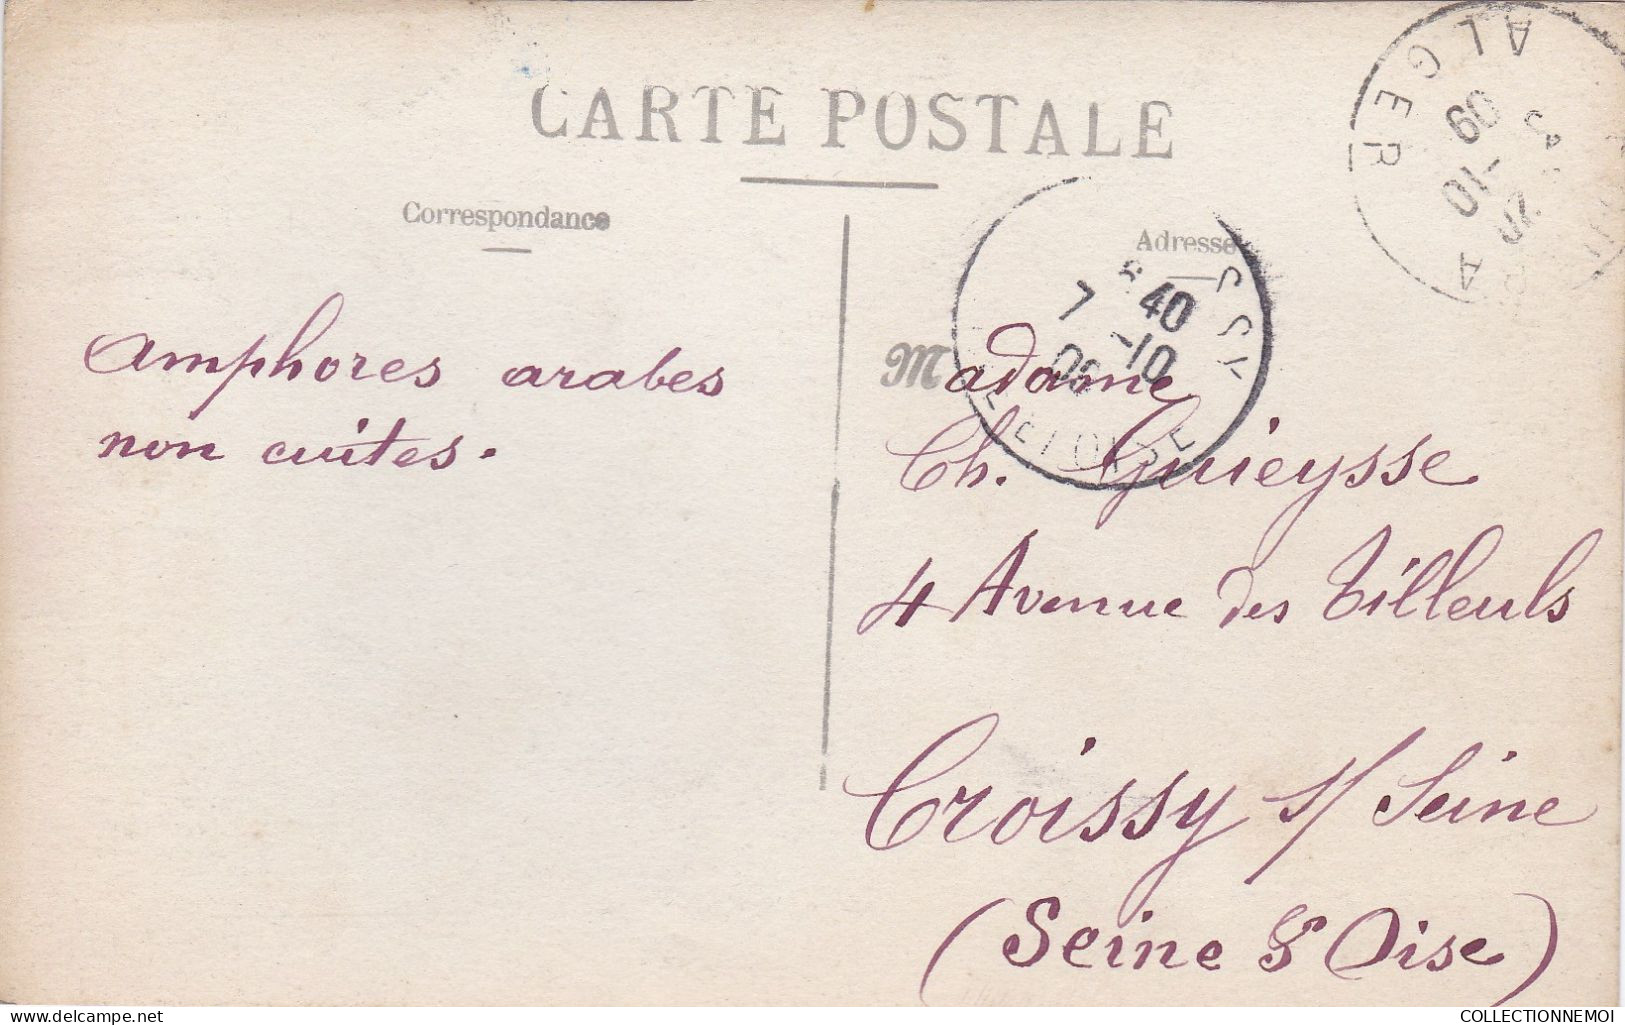 CARTE POSTALE
Correspondance
Adresse
amphores arabes
non cuites.
Madame
Ch. Guieysse
4 Avenue des Tilleuls
Croissy s/ Seine
(Seine & Oise)
ALGER
10-09
7 -10
40
delcampe.net
COLLECTIONNEMOI